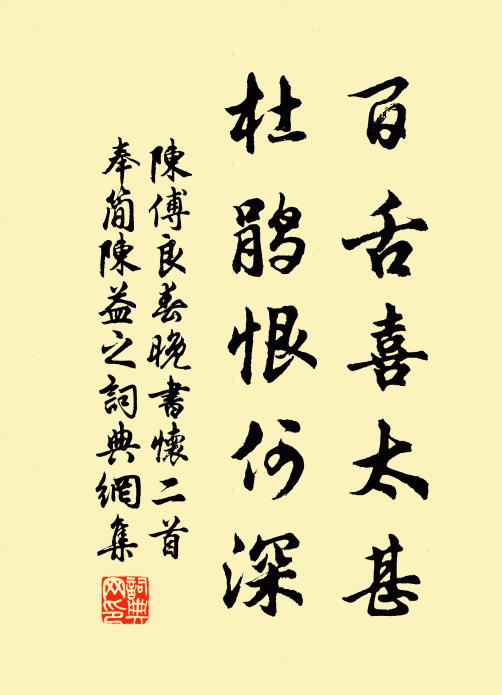 百舌喜太甚
杜鹃恨何深
陳傅良春晚書懷二首
奉簡陳益之詞典網集
詞典網印